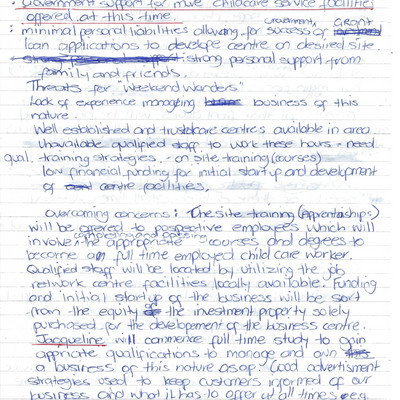 : Government support for more childcare service facilities
offered at this time.
Government GRANT
: minimal personal liabilities allowing for success of
loan applications to develope centre on desired site.
strong personal support from
family and friends.
Threats for "Weekend Wanders"
Lack of experience managing business of this
nature.
Well established and trustcare centres available in area
Unavailable qualified staff to work these hours - need
qual. training strategies. - on site training (courses)
low financial funding for initial startup and development
of centre facilities.
Overcoming concerns: The site training (apprentaships)
will be offered to pospective employees which will
completing and obtaining
involve the appropriate courses and degrees to
become an full time employed child care worker.
Qualified staff will be located by utilizing the job
network centre facilities locally available. Funding
and initial startup of the business will be sort
from the equity of the investment property solely
purchased for the developement of the business centre.
Jacqueline will commence full time study to gain
appriate qualifications to manage and own
a business of this nature asap. Good advertisment
strategies used to keep customers informed of our
business and what it has to offer at all times e.g.